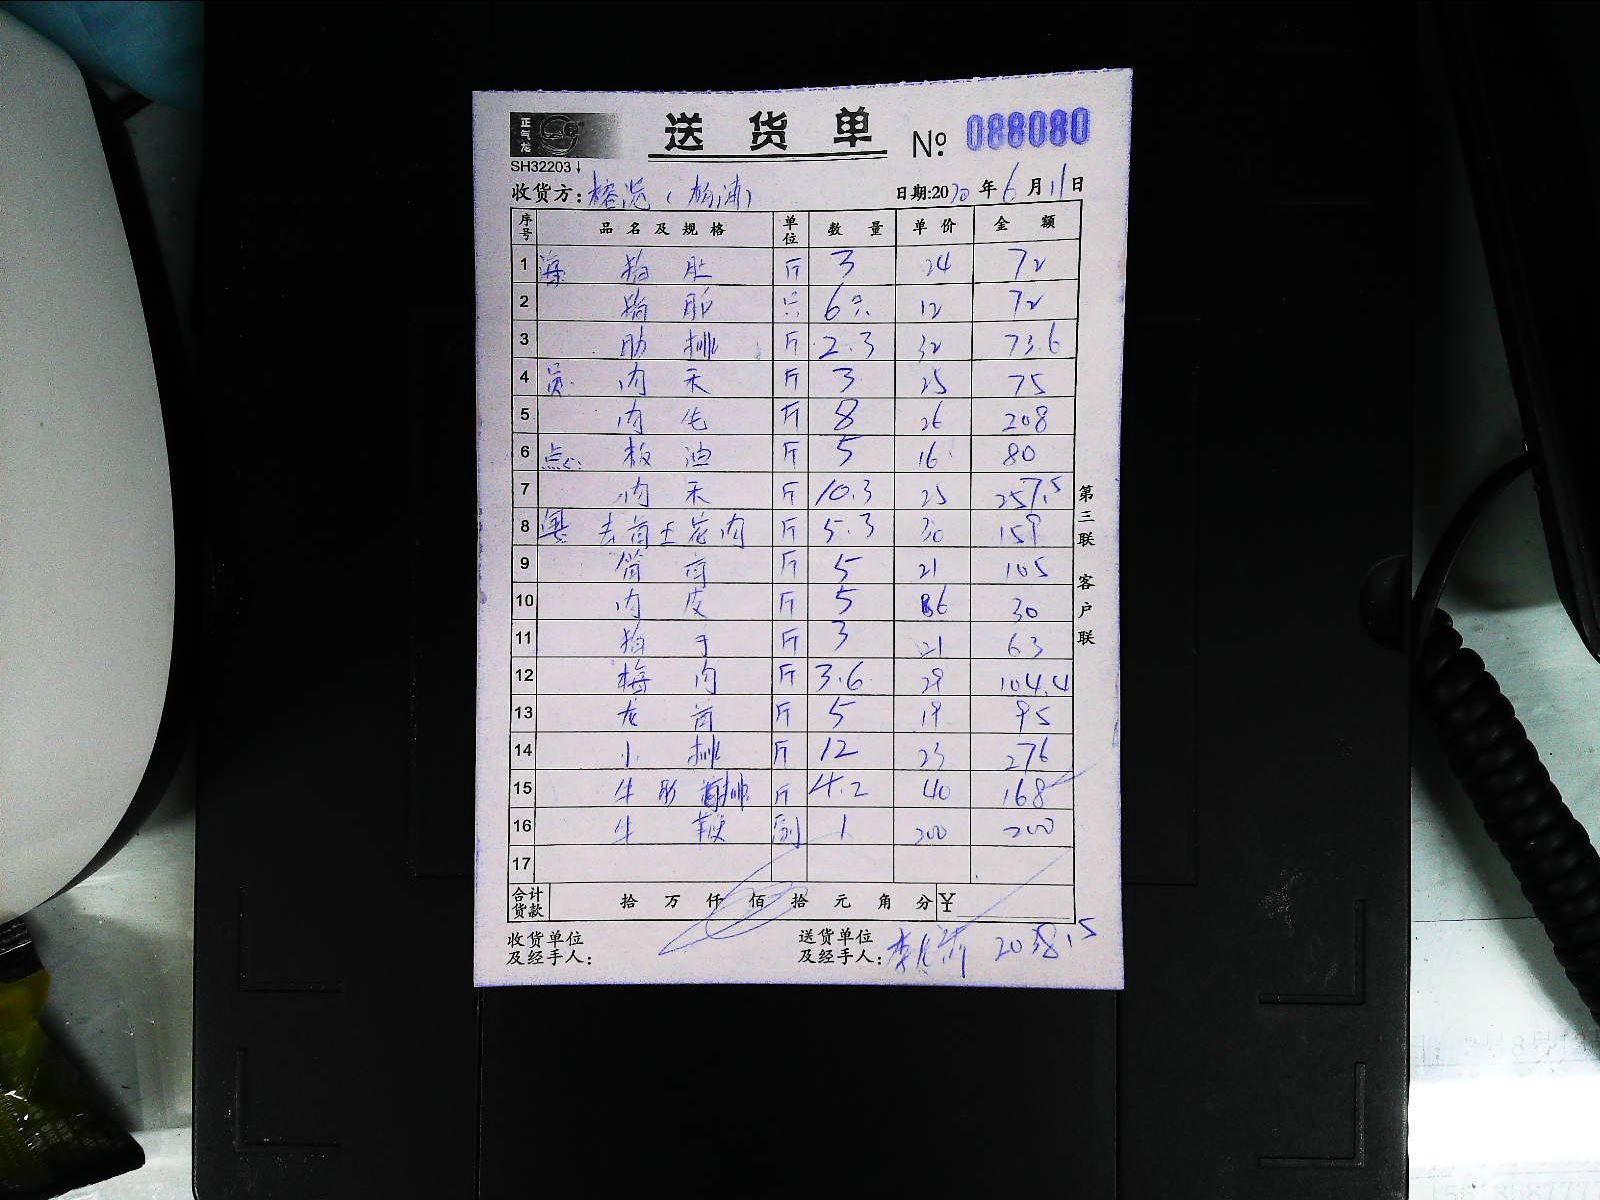 正气龙
送货单 № 088080
SH32203↓
收货方: 榕港(杨浦) 日期:2020年6月11日
序号 品名及规格 单位 数量 单价 金额
1 海 猪肚 斤 3 24 72
2 只 6只 12 72
3 肋排 斤 2.3 32 73.6
4 员 肉末 斤 3 25 75
5 肉 斤 8 26 208
6 点心 板油 斤 5 16 80
7 肉末 斤 10.3 25 257.5
8 粤 去 五花肉 斤 5.3 30 159
9 筒骨 斤 5 21 105
10 肉皮 斤 5 6 30
11 猪手 斤 3 21 63
12 梅肉 斤 3.6 29 104.4
13 龙骨 斤 5 19 95
14 小排 斤 12 23 276
15 牛肋排 斤 4.2 40 168
16 牛鞭 副 1 200 200
17
合计货款 拾 万 仟 佰 拾 元 角 分 ¥
收货单位及经手人: 送货单位及经手人: 2038.5
第三联 客户联